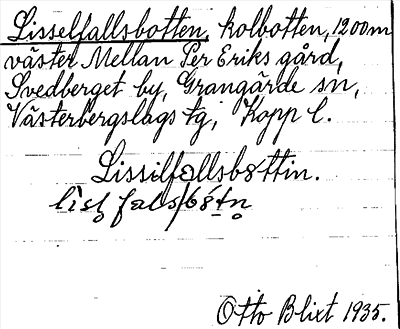 Lisselfallsbotten, kolbotten, 1200 m
väster Mellan Per Eriks gård,
Svedberget by, Grangärde sn,
Västerbergslags tg, Kopp l.
Lissilfallsbôttin.
Otto Blixt 1935.